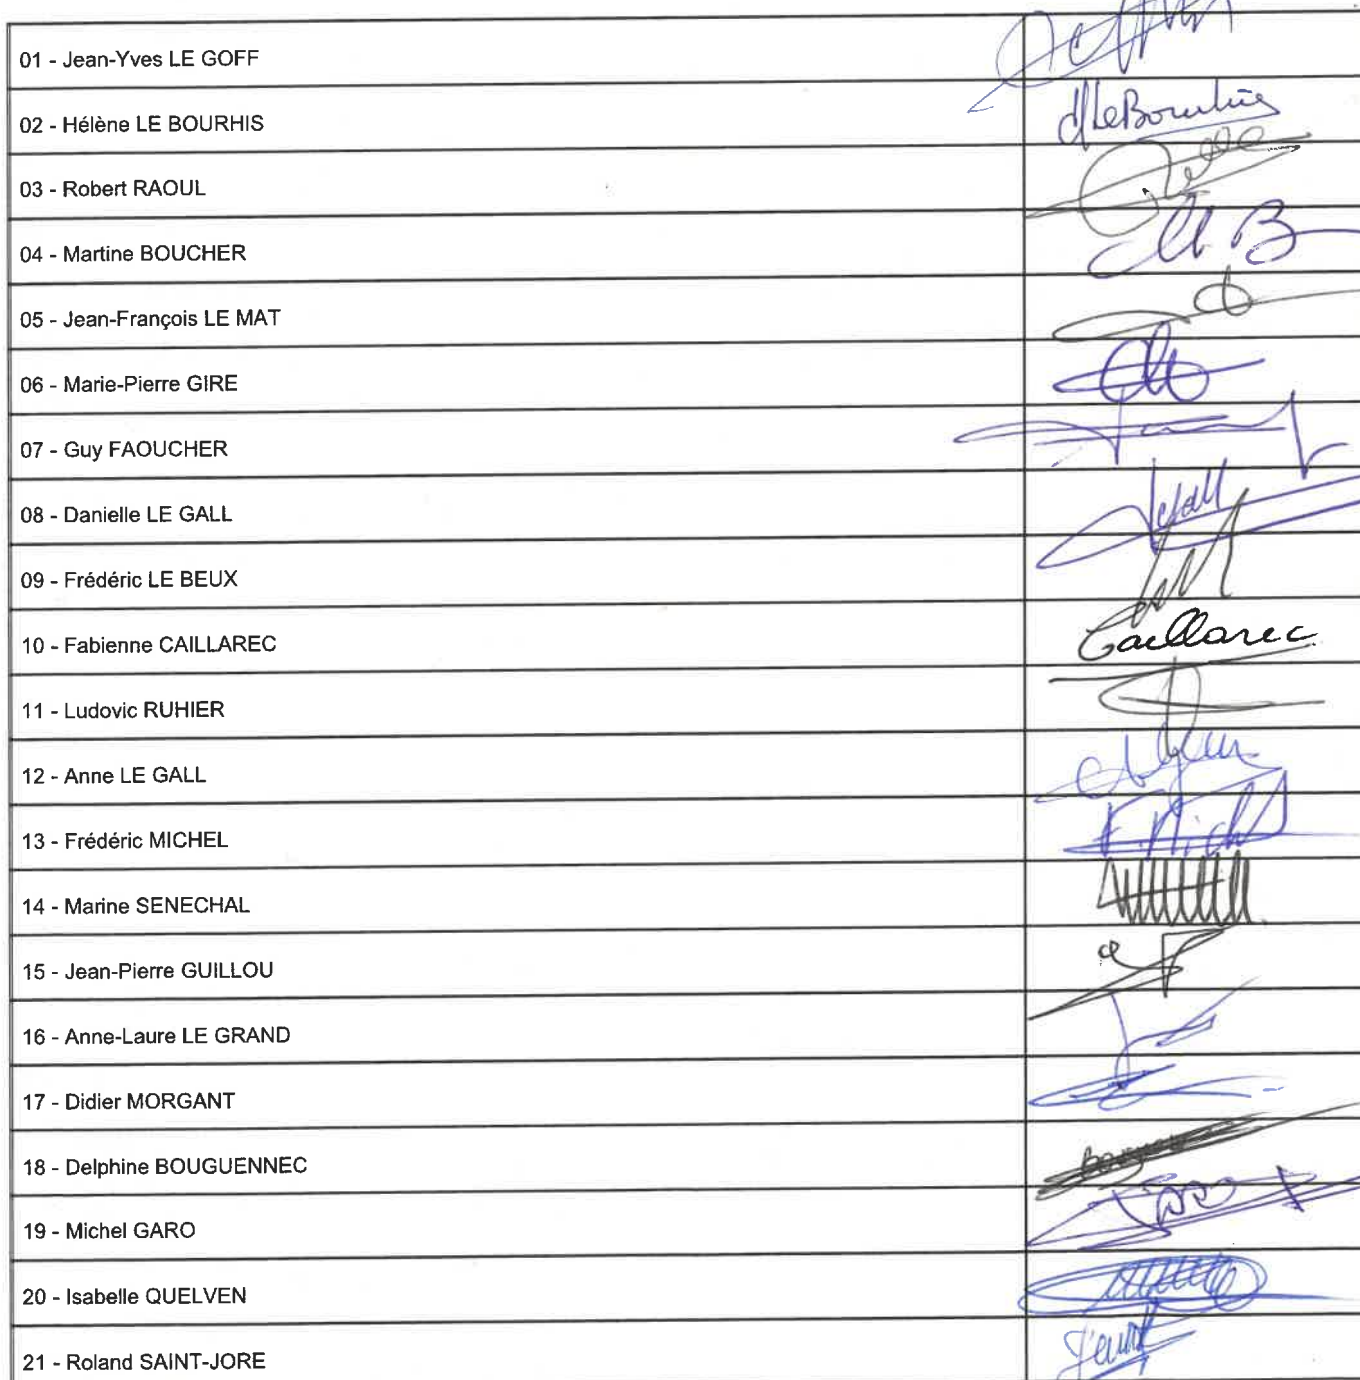 01 - Jean-Yves LE GOFF
02 - Hélène LE BOURHIS
HLeBourhis
03 - Robert RAOUL
04 - Martine BOUCHER
M B
05 - Jean-François LE MAT
06 - Marie-Pierre GIRE
07 - Guy FAOUCHER
08 - Danielle LE GALL
LeGall
09 - Frédéric LE BEUX
10 - Fabienne CAILLAREC
Caillarec
11 - Ludovic RUHIER
12 - Anne LE GALL
13 - Frédéric MICHEL
F. Michel
14 - Marine SENECHAL
15 - Jean-Pierre GUILLOU
16 - Anne-Laure LE GRAND
17 - Didier MORGANT
18 - Delphine BOUGUENNEC
19 - Michel GARO
20 - Isabelle QUELVEN
21 - Roland SAINT-JORE